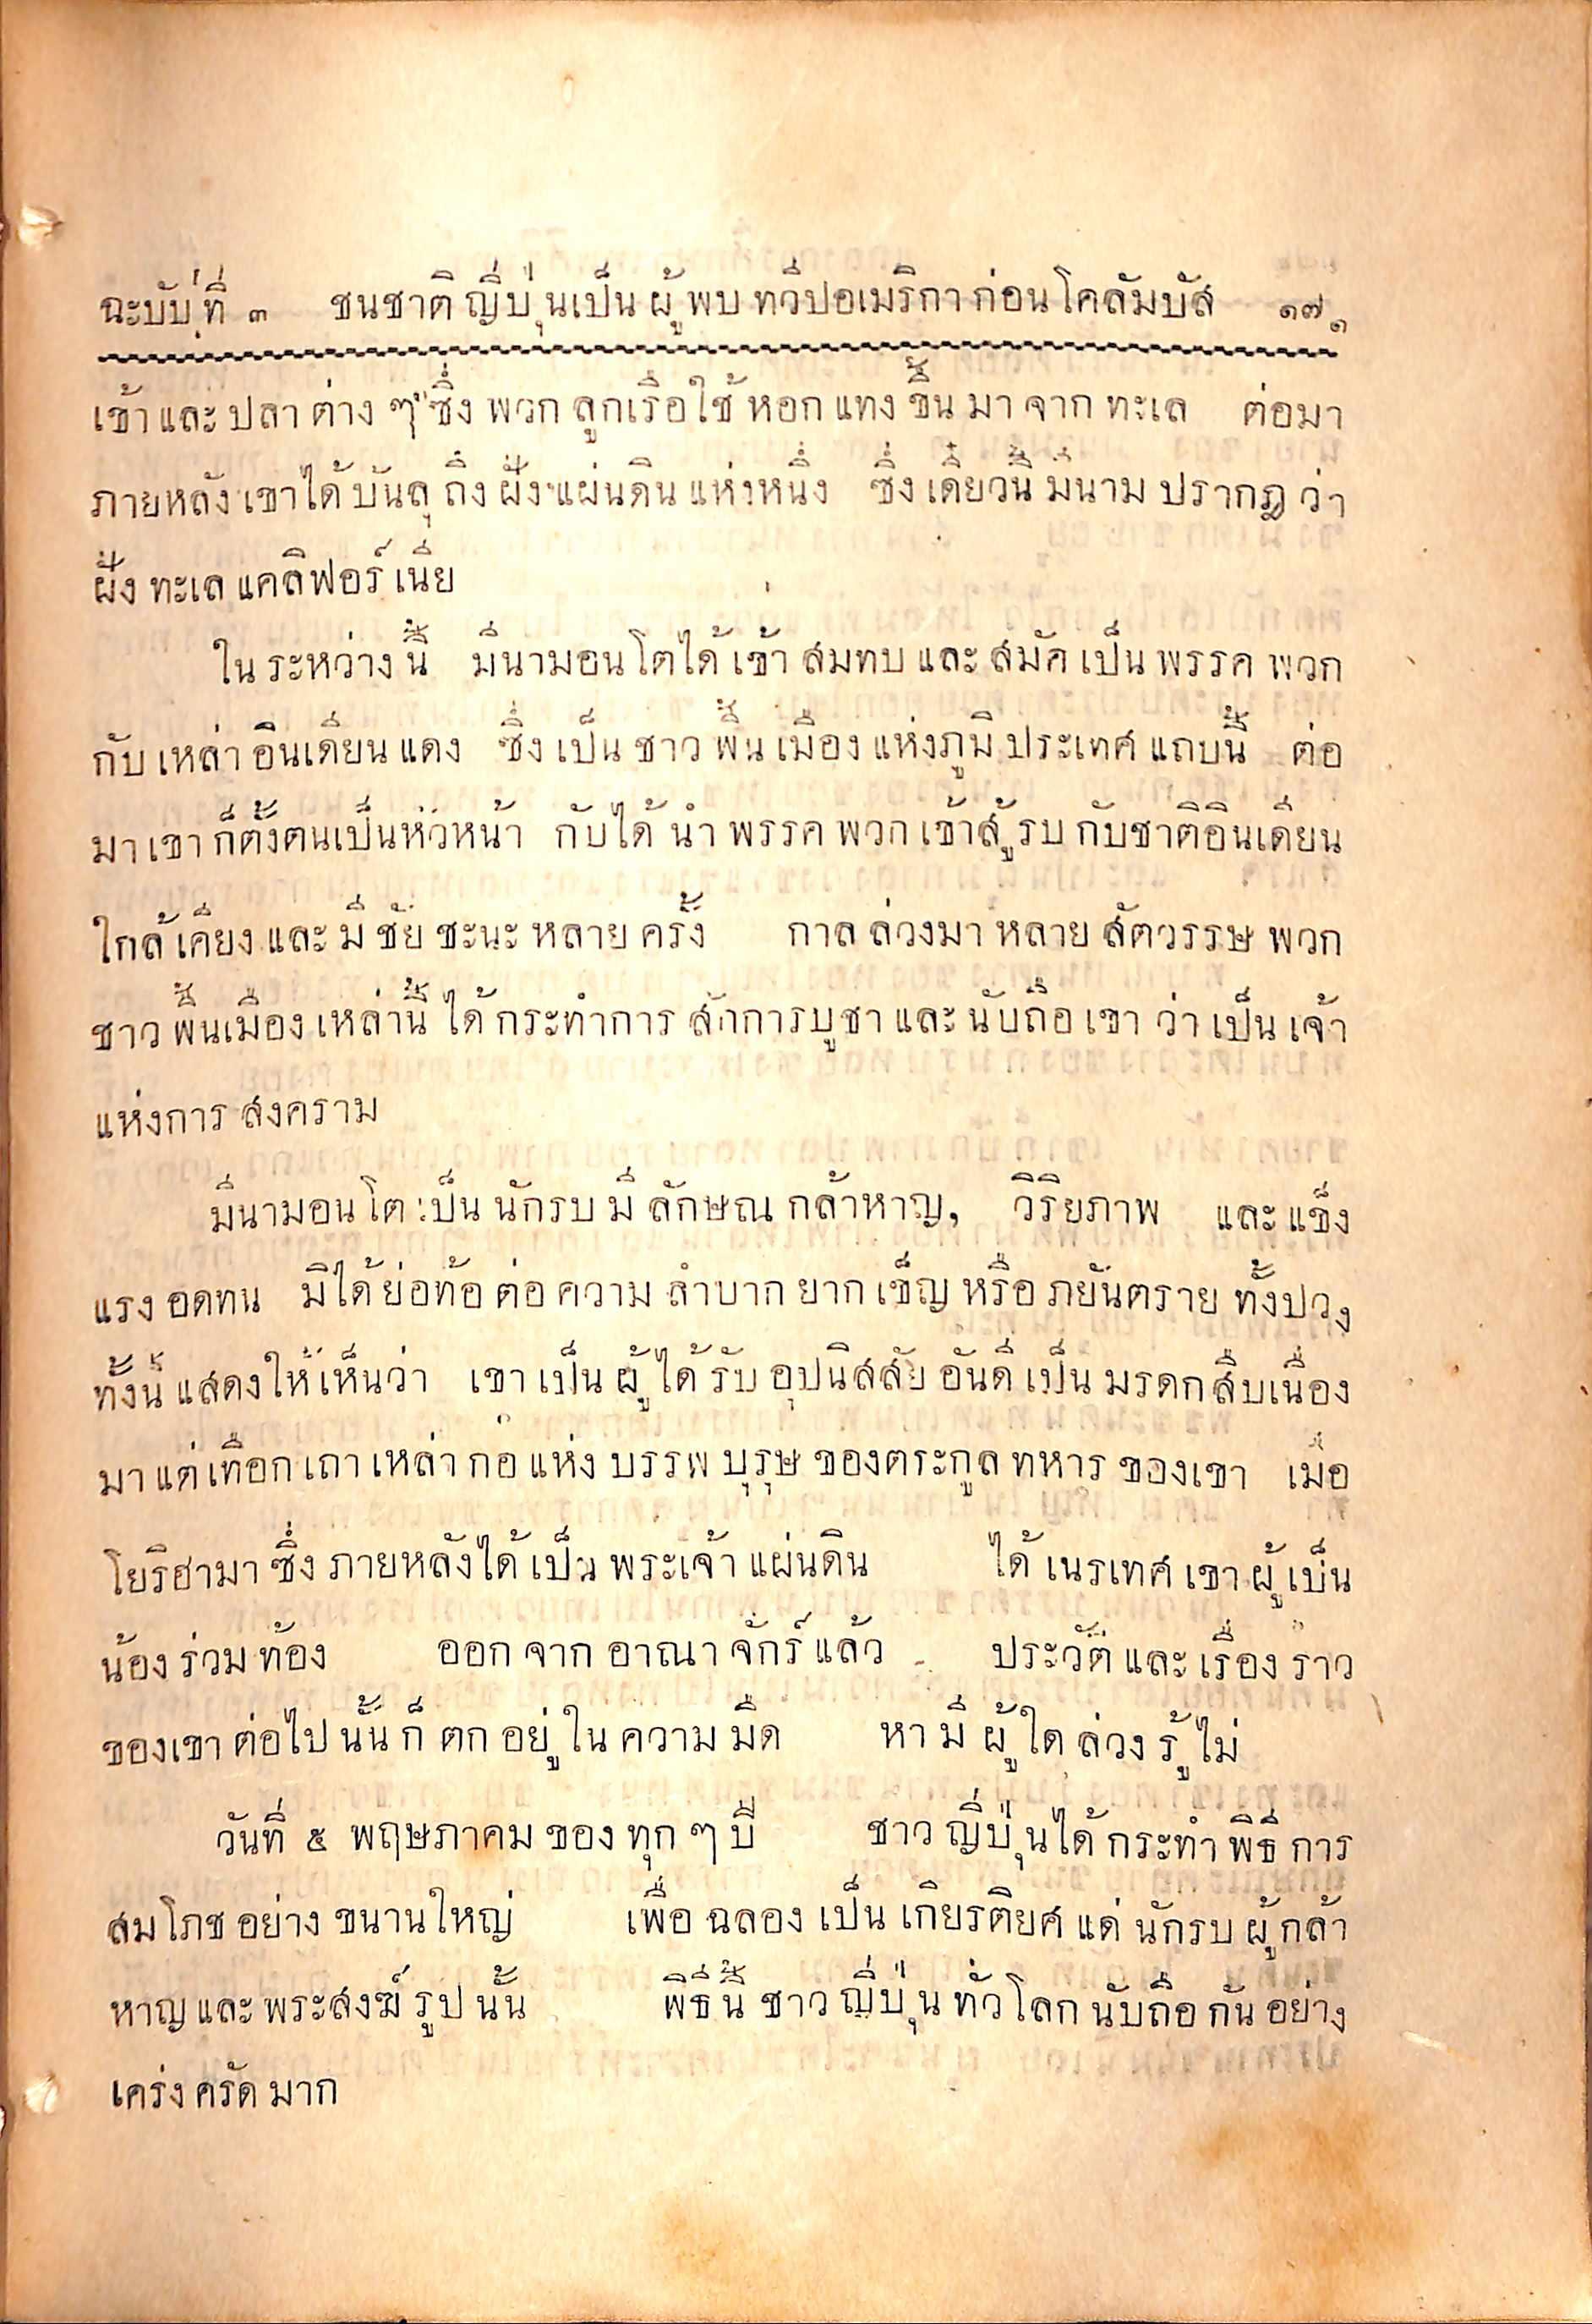 ฉะบับที่ ๓ ชนชาติญี่ปุ่นเป็นผู้พบทวีปอเมริกาก่อนโคลัมบัส ๑๗๑
เข้าและปลาต่าง ๆ ซึ่งพวกลูกเรือใช้หอกแทงขึ้นมาจากทะเล ต่อมา
ภายหลังเขาได้บันลุถึงฝั่งแผ่นดินแห่งหนึ่ง ซึ่งเดี๋ยวนี้มีนามปรากฎว่า
ฝั่งทะเลแคลิฟอร์เนีย
ในระหว่างนี้ มีนามอนโตได้เข้าสมทบและสมัคเป็นพรรคพวก
กับเหล่าอินเดียนแดง ซึ่งเป็นชาวพื้นเมืองแห่งภูมิประเทศแถบนี้ ต่อ
มาเขาก็ตั้งตนเป็นหัวหน้า กับได้นำพรรคพวกเข้าสู้รบกับชาติอินเดียน
ใกล้เคียงและมีชัยชะนะหลายครั้ง กาลล่วงมาหลายสัตวรรษพวก
ชาวพื้นเมืองเหล่านี้ได้กระทำการสักการบูชาและนับถือเขาว่าเป็นเจ้า
แห่งการสงคราม
มีนามอนโตเป็นนักรบมีลักษณกล้าหาญ, วิริยภาพ และแข็ง
แรงอดทน มิได้ย่อท้อต่อความลำบากยากเข็ญหรือภยันตรายทั้งปวง
ทั้งนี้แสดงให้เห็นว่า เขาเป็นผู้ได้รับอุปนิสสัยอันดีเป็นมรดกสืบเนื่อง
มาแต่เทือกเถาเหล่ากอแห่งบรรพบุรุษของตระกูลทหารของเขา เมื่อ
โยริฮามาซึ่งภายหลังได้เป็นพระเจ้าแผ่นดิน ได้เนรเทศเขาผู้เป็น
น้องร่วมท้อง ออกจากอาณาจักร์แล้ว ประวัติและเรื่องราว
ของเขาต่อไปนั้นก็ตกอยู่ในความมืด หามีผู้ใดล่วงรู้ไม่
วันที่ ๕ พฤษภาคมของทุก ๆ ปี ชาวญี่ปุ่นได้กระทำพิธีการ
สมโภชอย่างขนานใหญ่ เพื่อฉลองเป็นเกียรติยศแด่นักรบผู้กล้า
หาญและพระสงฆ์รูปนั้น พิธีนี้ชาวญี่ปุ่นทั่วโลกนับถือกันอย่าง
เคร่งครัดมาก